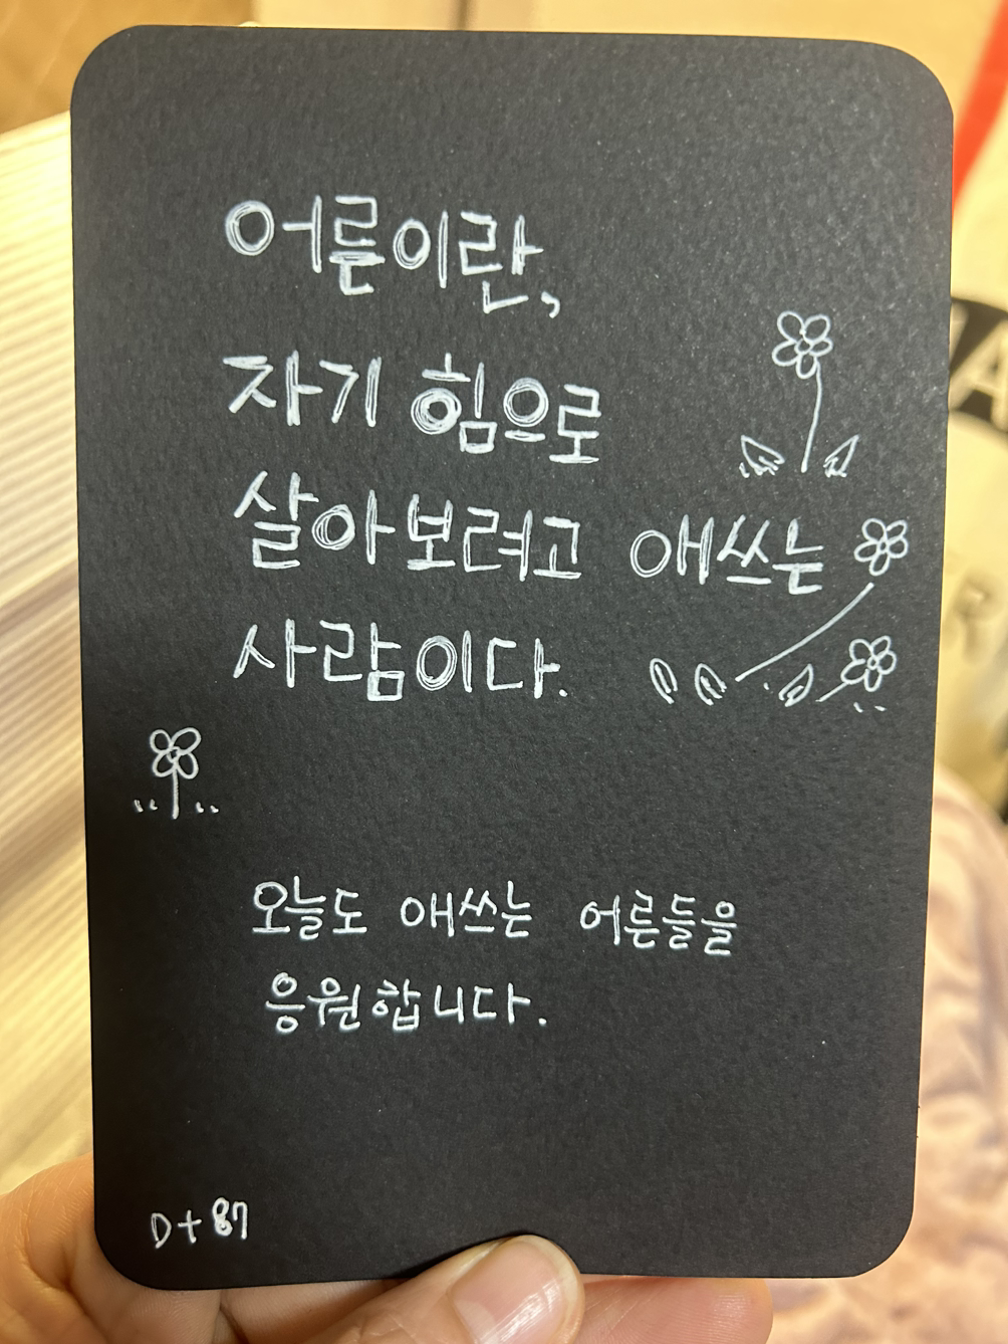 어른이란,
자기 힘으로
살아보려고 애쓰는
사람이다.
오늘도 애쓰는 어른들을
응원합니다.
D+87